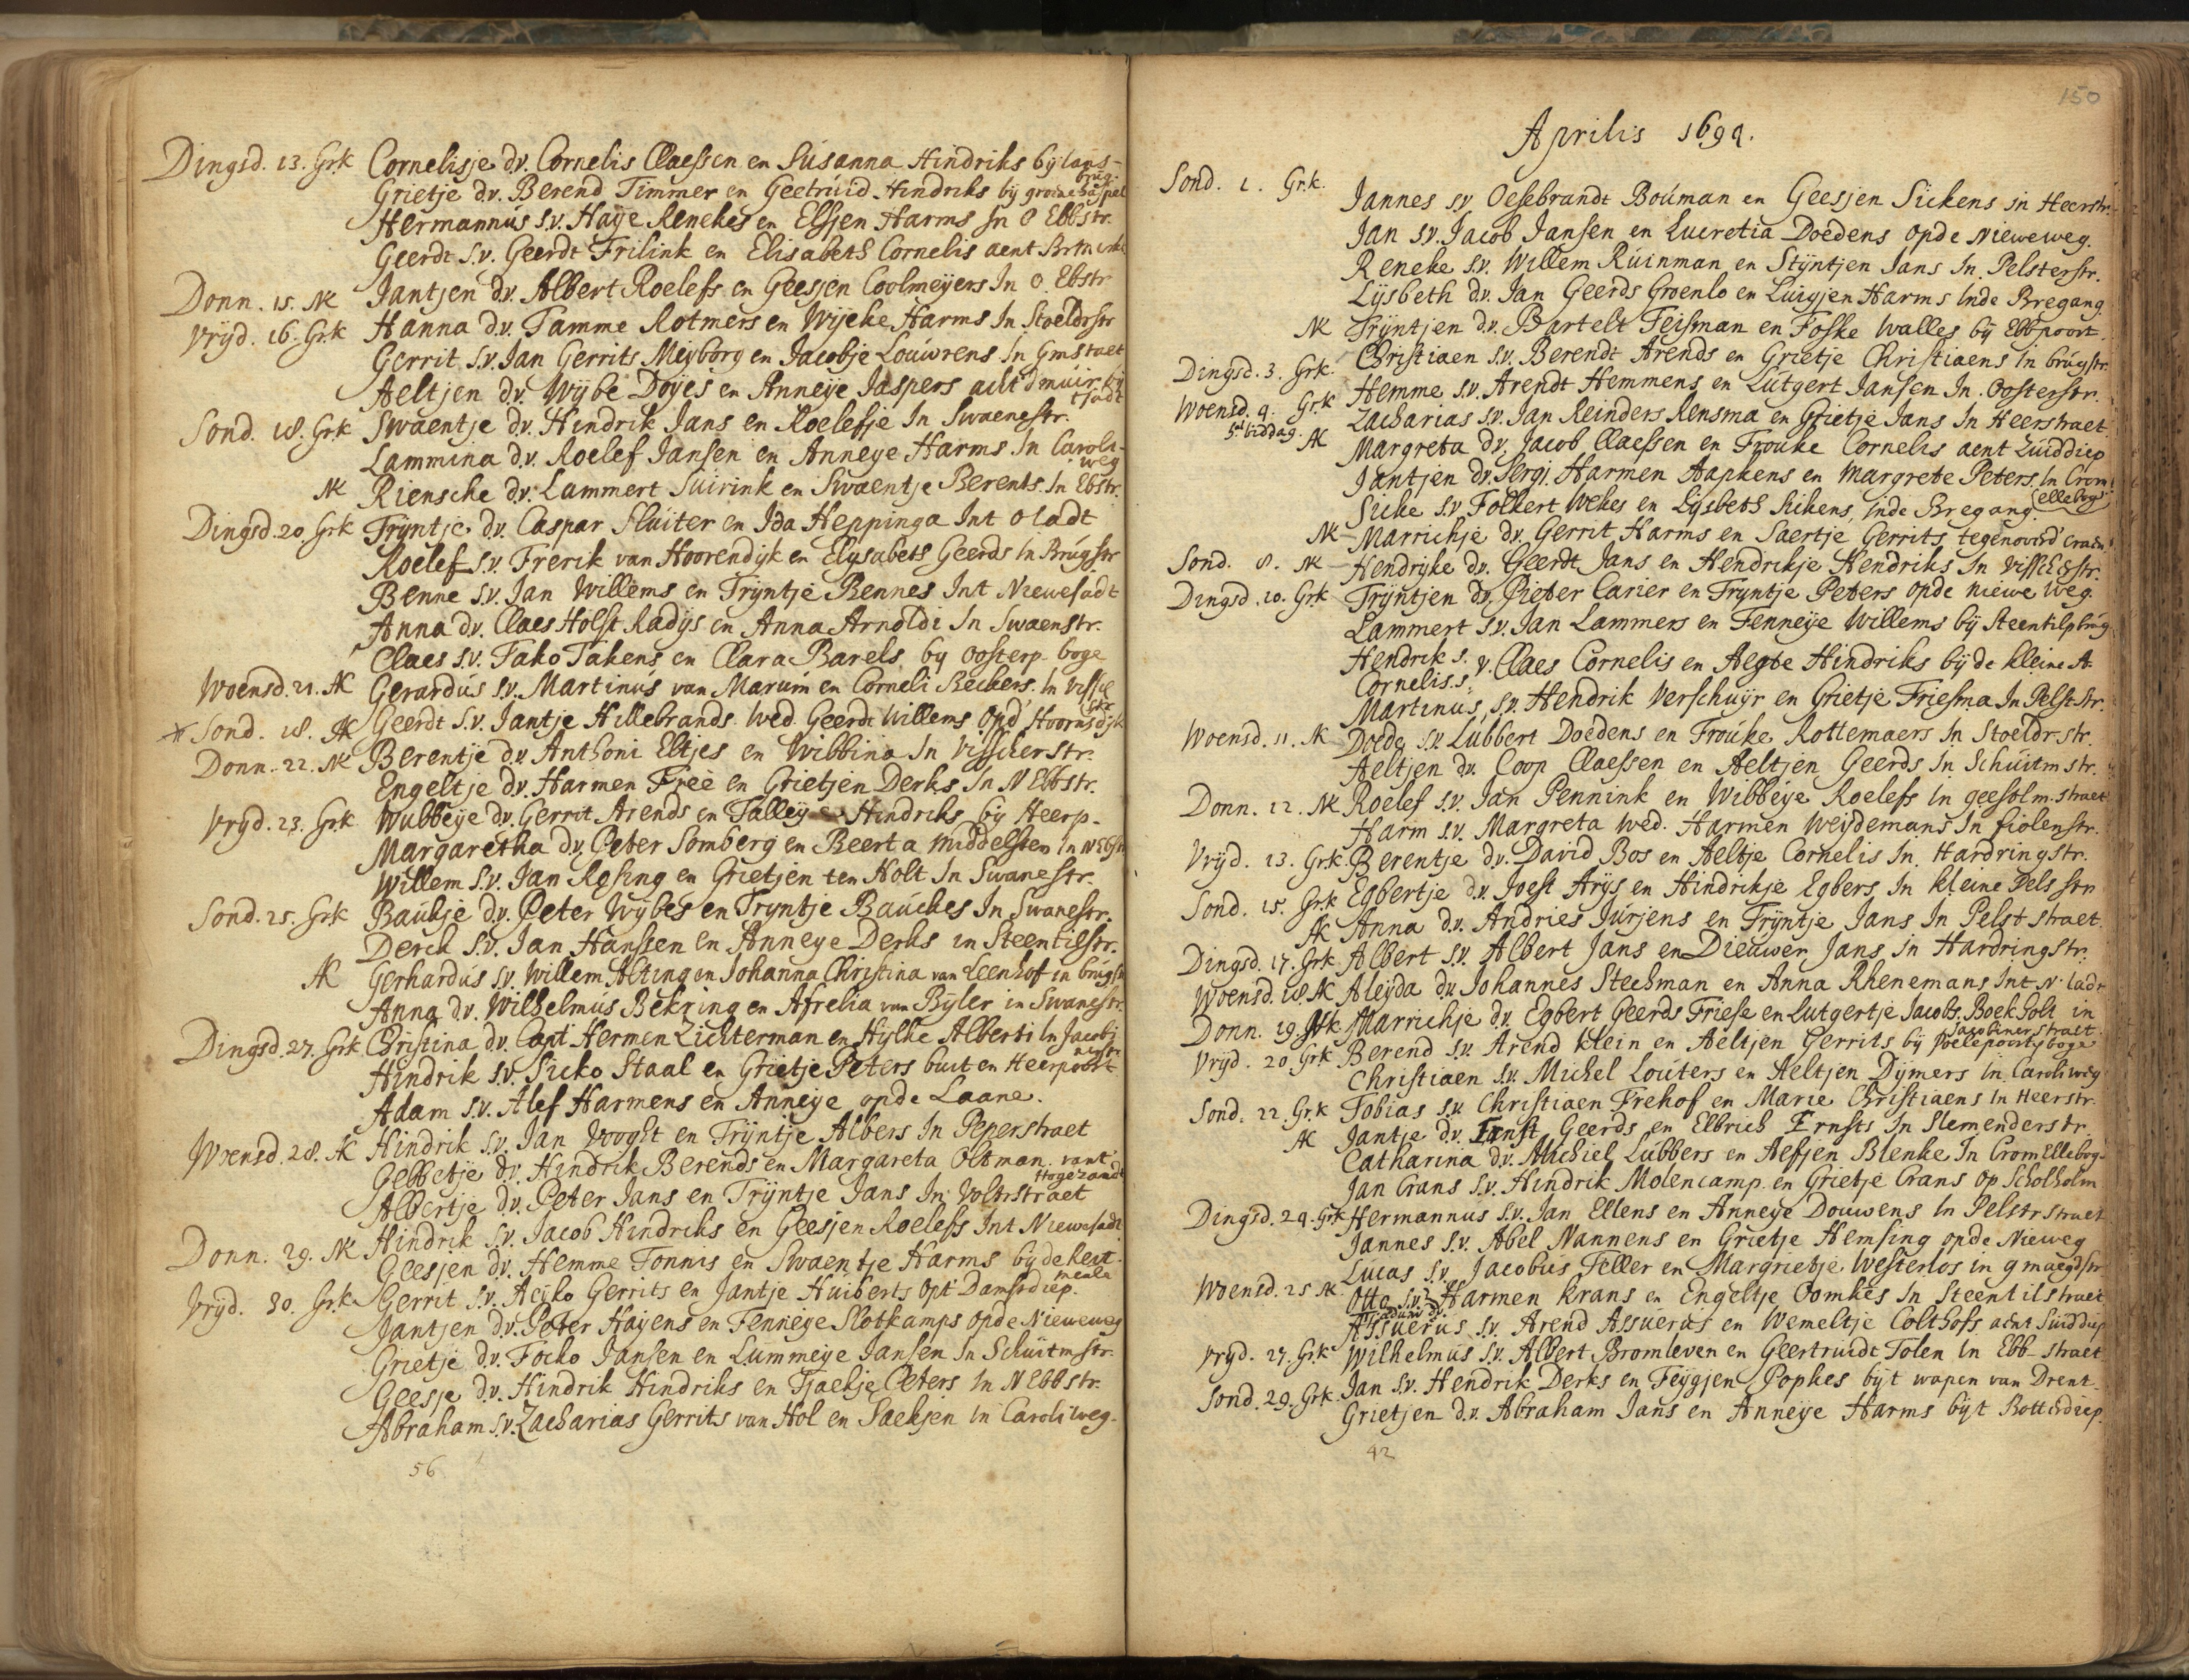 Dingsd. 13. Grk Cornelisje d.v. Cornelis Claessen en Susanna Hindriks by lans-
brug.
Grietje d.v. Berend Timmer en Geetruid Hindriks bij groene haspel
Hermannus s.v. Haye Renekes en Elsjen Harms In O Ebbstr.
Geerdt s.v. Geerdt Frilink en Elisabeth Cornelis aent
Donn. 15. AK Jantjen d.v. Albert Roelefs en Geesjen Coolmeyers In O. Ebstr
Vryd. 16. Grk Hanna d.v. Tamme Rotmers en Wyeke Harms In Stoeldrstr
Gerrit s.v. Jan Gerrits Meyborg en Jacobje Louwrens In Gmstraet
Aeltjen d.v. Wybe Doyes en Anneye Jaspers acht d'muir bij
Sond. 18. Grk Swaentje d.v. Hindrik Jans en Roelefje In Swaenestr.
Lammina d.v. Roelef Jansen en Anneye Harms In Caroli-
weg
NK Riensche d.v. Lammert Suirink en Swaentje Berents In Ebstr.
Dingsd. 20. Grk Tryntje d.v. Caspar Sluiter en Ida Heppinga Int O ladt
Roelef s.v. Frerik van Hoorendyk en Elysabeth Geerds In Brugstr
Benne s.v. Jan Willems en Tryntje Bennes Int Niewesadt
Anna d.v. Claes Holst Radys en Anna Arnoldi In Swaenstr.
Claes s.v. Tako Takens en Clara Barels by oosterp. boge
Woensd. 21. AK Gerardus s.v. Martinus van Marum en Corneli Beckers In Vissch
str
Sond. 18. AK Geerdt s.v. Jantje Hillebrands Wed. Geerdt Willems Opd' Hoornsdyk
Donn. 22. NK Berentje d.v. Anthoni Eltjes en Wibbina In Visscherstr.
Engeltje d.v. Harmen Freé en Grietjen Derks In N Ebbstr.
Vryd. 23. Grk Wubbeye d.v. Gerrit Arends en Talleye Hindriks by Heerp-
Margaretha d.v. Peter Somberg en Beerta Middelsten In N Ebstr
Willem s.v. Jan Resing en Grietjen ten Holt In Swanestr.
Sond. 25. Grk Baukje d.v. Peter Wybes en Tryntje Bauckes In Swanestr.
Derck s.v. Jan Hanssen en Anneye Derks in Steentilstr.
AK Gerhardus s.v. Willem Alting en Johanna Christina van Leenhof in brugstr
Anna d.v. Wilhelmus Bekring en Afrelia van Byler in Swanestr.
Dingsd. 27. Grk Christina d.v. Capt Hermen Lichterman en Hylke Alberti In Jacobi
nerstr.
Hindrik s.v. Sicko Staal en Grietje Peters buiten Heerpoort
Adam s.v. Alef Harmens en Anneye opde Laane.
Woensd. 28. AK Hindrik s.v. Jan Vooght en Tryntje Albers In Peperstraet
Gebbetje d.v. Hindrik Berends en Margareta Oltman vant
Hogezandt
Albertje d.v. Peter Jans en Tryntje Jans In Voltrstraet
Hindrik s.v. Jacob Hindriks en Geesjen Roelefs Int Niewesadt
Donn. 29. NK Geesjen d.v. Hemme Tonnis en Swaentje Harms bij de keit
meule
Vryd. 30. Grk Gerrit s.v. Aeyko Gerrits en Jantje Huiberts Opt Damsdiep.
Jantjen d.v. Peter Hayens en Fenneye Slotkamps Opde Nieweweg
Grietje d.v. Focko Jansen en Lummeye Jansen In Schuitmstr.
Geesje d.v. Hindrik Hindriks en Tjaekje Peters In N Ebbstr.
Abraham s.v. Zacharias Gerrits van Hol en Saeksen in Caroliweg.
56
150
Aprilis 1694.
Sond. 1. Gr.k. Jannes s.v. Oesebrandt Bouman en Geesjen Sickens in Heerstr.
Jan s.v. Jacob Jansen en Lucretia Doedens Opde Nieweweg.
Reneke s.v. Willem Ruinman en Styntjen Jans In Pelsterstr.
Lysbeth d.v. Jan Geerds Groenlo en Luigjen Harms Inde Bregang.
NK Tryntjen d.v. Bartelt Feisman en Foske Walles by Ebbpoort.
Christiaen s.v. Berendt Arends en Grietje Christiaens in brugstr.
Dingsd. 3. Grk. Hemme s.v. Arendt Hemmens en Lutgert Jansen In Oosterstr.
Woensd. 4. Gr.k Zacharias s.v. Jan Reinders Rensma en Grietje Jans In Heerstraet.
biddag. AK Margreta d.v. Jacob Claessen en Frouke Cornelis aent Zuiddiep
Jantjen d.v. Sergt. Harmen Aapkens en Margrete Peters In Crom
elleboge
Sicke s.v. Folkert Wekes en Lysbeth Sickens, Inde Bregang.
NK Marrichje d.v. Gerrit Harms en Saertje Gerrits tegenoverd' craen
Sond. 8. NK Hendrijke d.v. Geerdt Jans en Hendrikje Hendriks In Visscherstr.
Dingsd. 10. Grk Tryntjen d.v. Pieter Carier en Tryntje Peters opde niewe weg.
Lammert s.v. Jan Lammers en Fenneye Willems bij Steentilpbrug
Hendrik s.
Cornelis. s. v. Claes Cornelis en Aegte Hindriks bij de kleine A.
Martinus s.v. Hendrik Verschuyr en Grietje Friesma In Pelststr.
Woensd. 11. AK Doede s.v. Lubbert Doedens en Frouke Rottemaers In Stoeldrstr.
Aeltjen d.v. Coop Claessen en Aeltjen Geerds In Schuitmstr.
Donn. 12. NK Roelef s.v. Jan Pennink en Wibbeye Roelefs In geesolm.straet
Harm s.v. Margreta Wed. Harmen Weydemans In fiolenstr.
Vryd. 13. Grk. Berentje d.v. David Bos en Aeltje Cornelis In Hardringstr.
Sond. 15. Grk Egbertje d.v. Joest Arys en Hindrikje Egbers In kleine Pelsstr
AK Anna d.v. Andries Jurjens en Tryntje Jans In Pelststraet.
Dingsd. 17. Grk Albert s.v. Albert Jans en Dieuwer Jans In Hardringstr.
Woensd. 18 AK Aleyda d.v. Johannes Steehman en Anna Rhenemans Int N. ladt
Donn. 19. Marrichje d.v. Egbert Geerds Friese en Lutgertje Jacobs. Boek Holt in
Jacobinerstraet.
Vryd. 20 Grk Berend s.v. Arend Klein en Aeltjen Gerrits bij Poelepoortsboge
Christiaen s.v. Michel Louters en Aeltjen Dymers In Caroliweg
Sond. 22. Gr.k Tobias s.v. Christiaen Frehof en Marie Christiaens In Heerstr.
AK Jantje d.v. Ernst Geerds en Elbrich Ernsts In Slemenderstr.
Catharina d.v. Michiel Lubbers en Aefjen Blenke In Cromellebog
Jan Crans s.v. Hindrik Molencamp en Grietje Crans op Scholholm
Dingsd. 24. Grk Hermannus s.v. Jan Ellens en Anneye Douwens In Pelstrstraet
Jannes s.v. Abel Nannens en Grietje Hemsing opde Nieweg
Lucas s.v. Jacobus Feller en Margrietje Westerlos in gmaegdstr
Woensd. 25 AK Otto s.v. Harmen Krans en Engeltje Oomkes In Steentilstraet
Assuerus s.v. Arend Assuerus en Wemeltje Colthofs acht Suiddiep
Vryd. 27. Grk Wilhelmus s.v. Albert Bromleven en Geertruidt Tolen In Ebb-straet
Sond. 29. Grk Jan s.v. Hendrik Derks en Feygjen Popkes bijt wapen van Drent.
Grietjen d.v. Abraham Jans en Anneye Harms bijt Botterdiep.
42